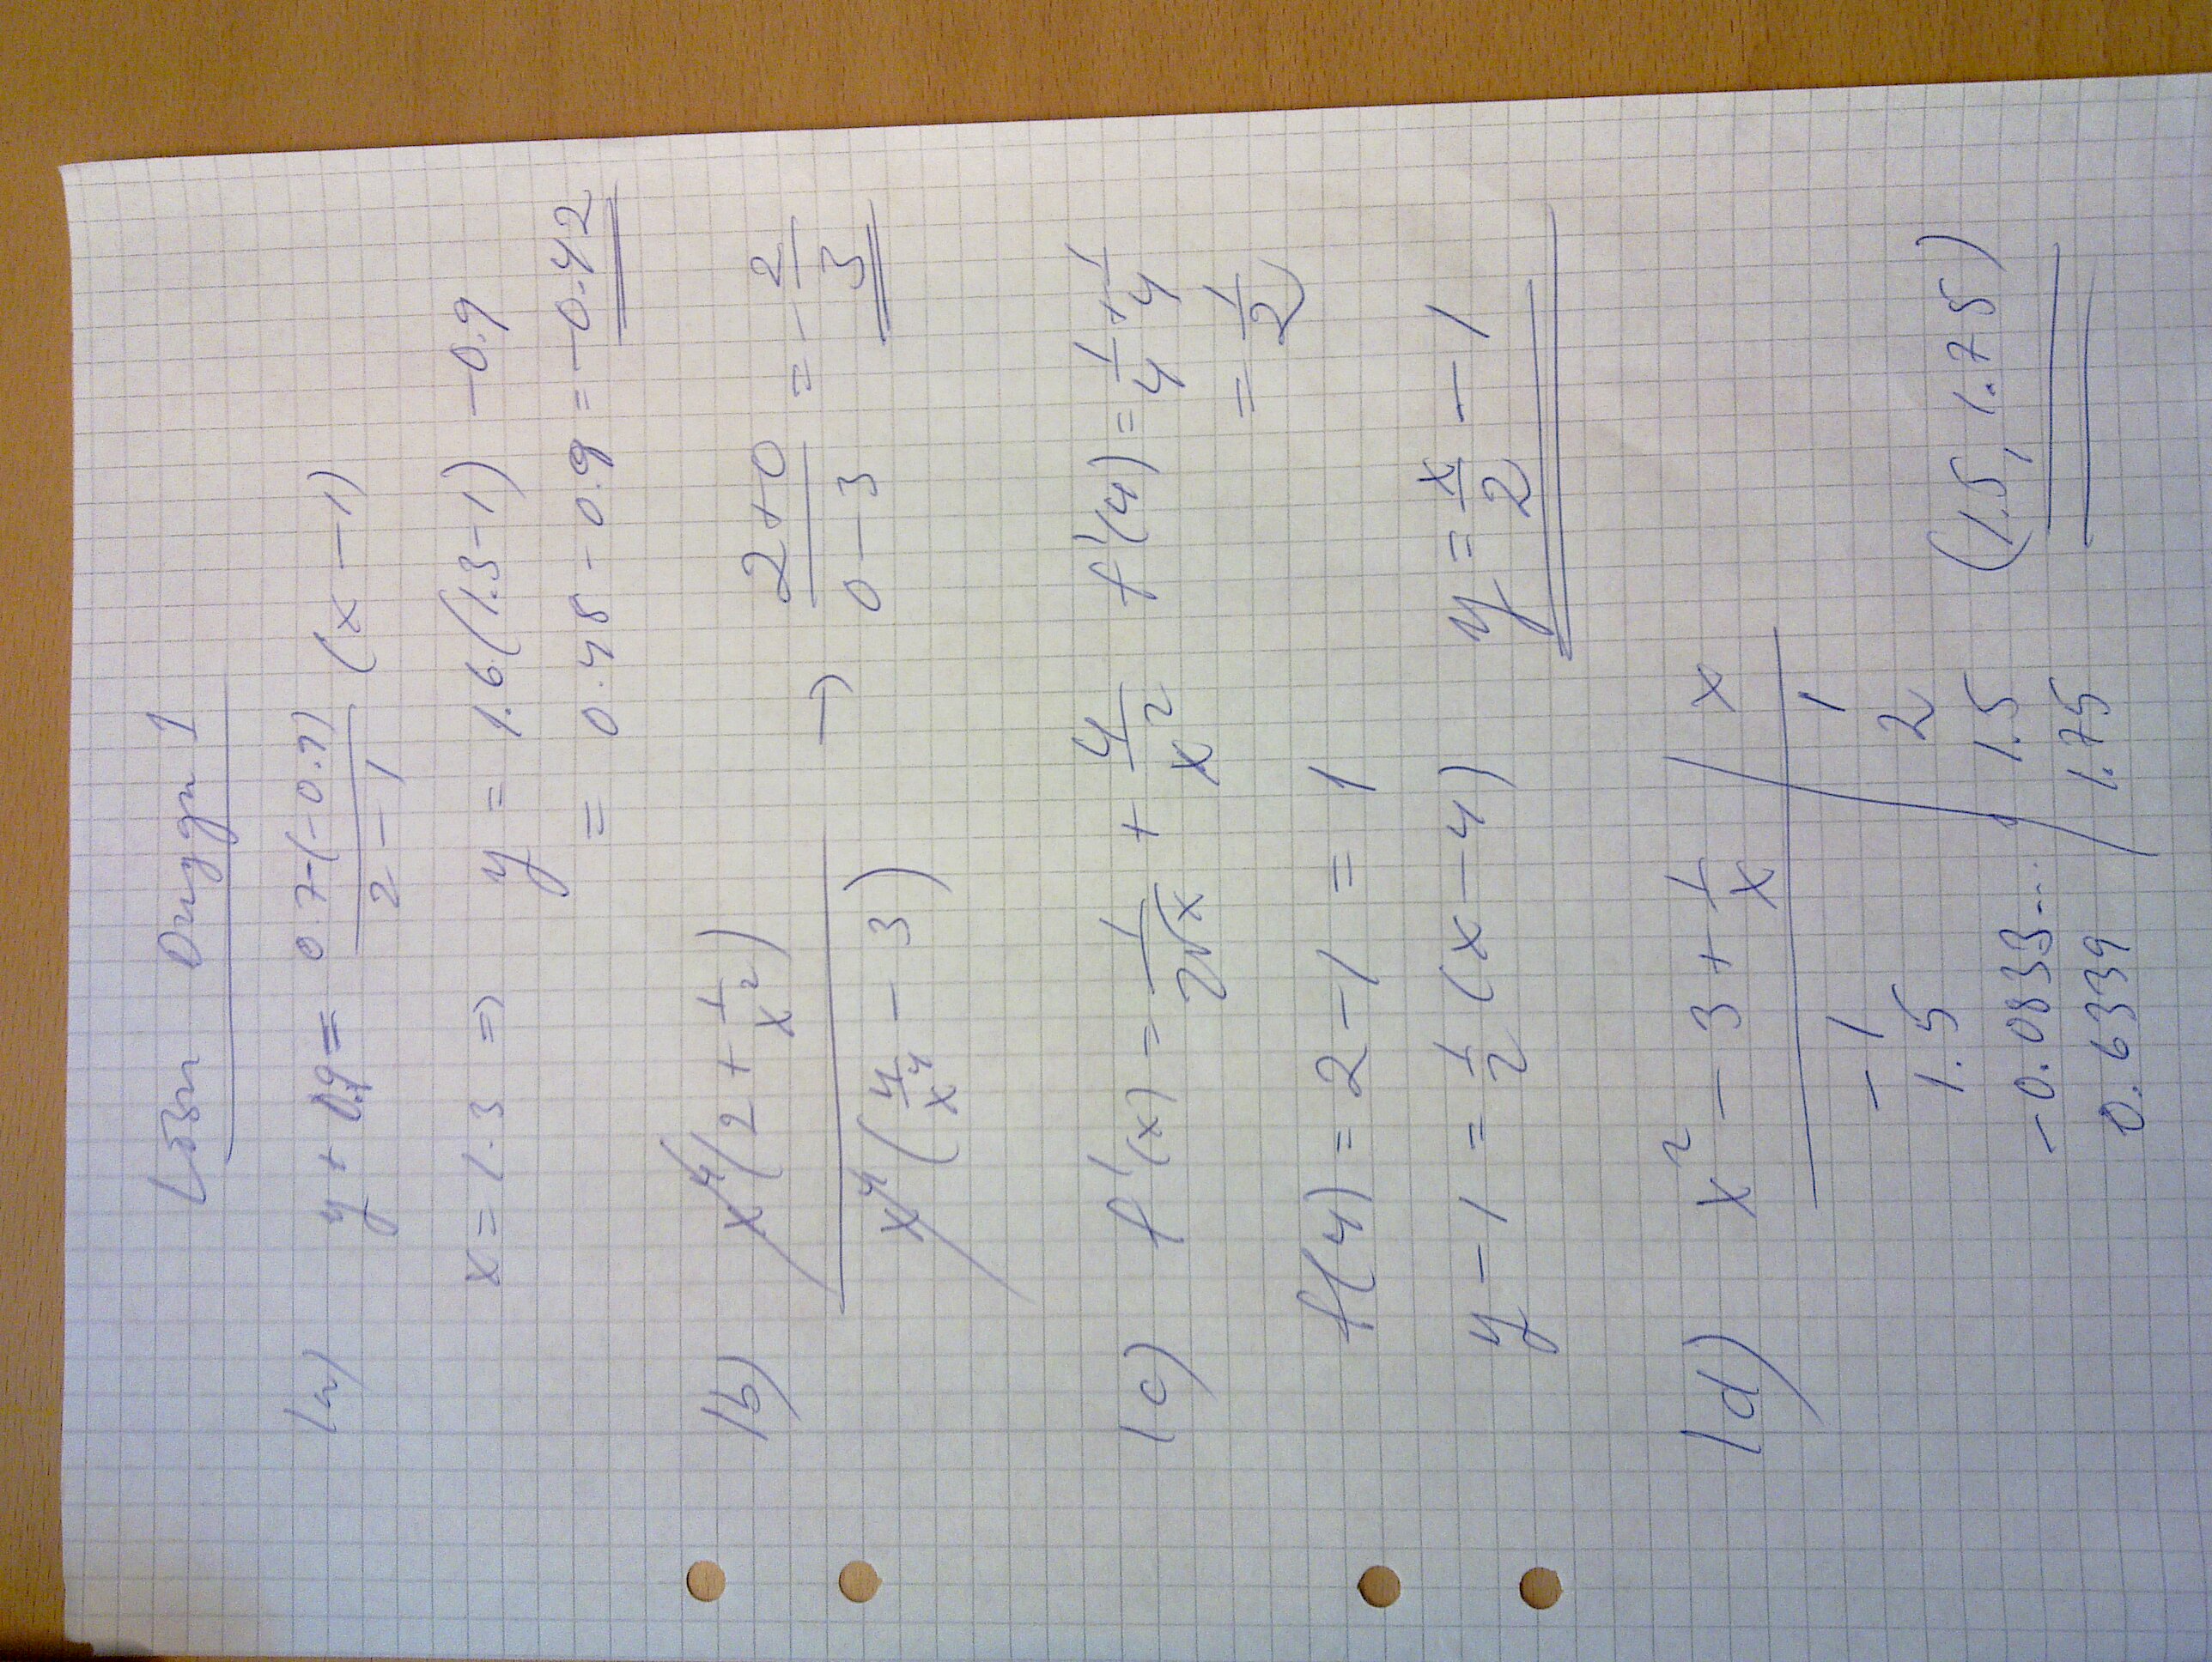 Lösn Dugga 1
1a) y + 0.9 = \frac{0.7-(-0.9)}{2-1} (x-1)
x = 1.3 => y = 1.6(1.3-1) -0.9
= 0.48 - 0.9 = -0.42
1b) \frac{x^4(2+\frac{1}{x^2})}{x^4(\frac{4}{x^4}-3)} → \frac{2+0}{0-3} = -\frac{2}{3}
1c) f'(x) = \frac{1}{2\sqrt{x}} + \frac{4}{x^2} f'(4) = \frac{1}{4}+\frac{1}{4}
= \frac{1}{2}
f(4) = 2-1 = 1
y-1 = \frac{1}{2}(x-4) y = \frac{x}{2} - 1
1d) x^2 - 3 + \frac{1}{x} | x
-1 | 1
1.5 | 2
-0.0833... | 1.5 (1.5, 1.75)
0.6339 | 1.75